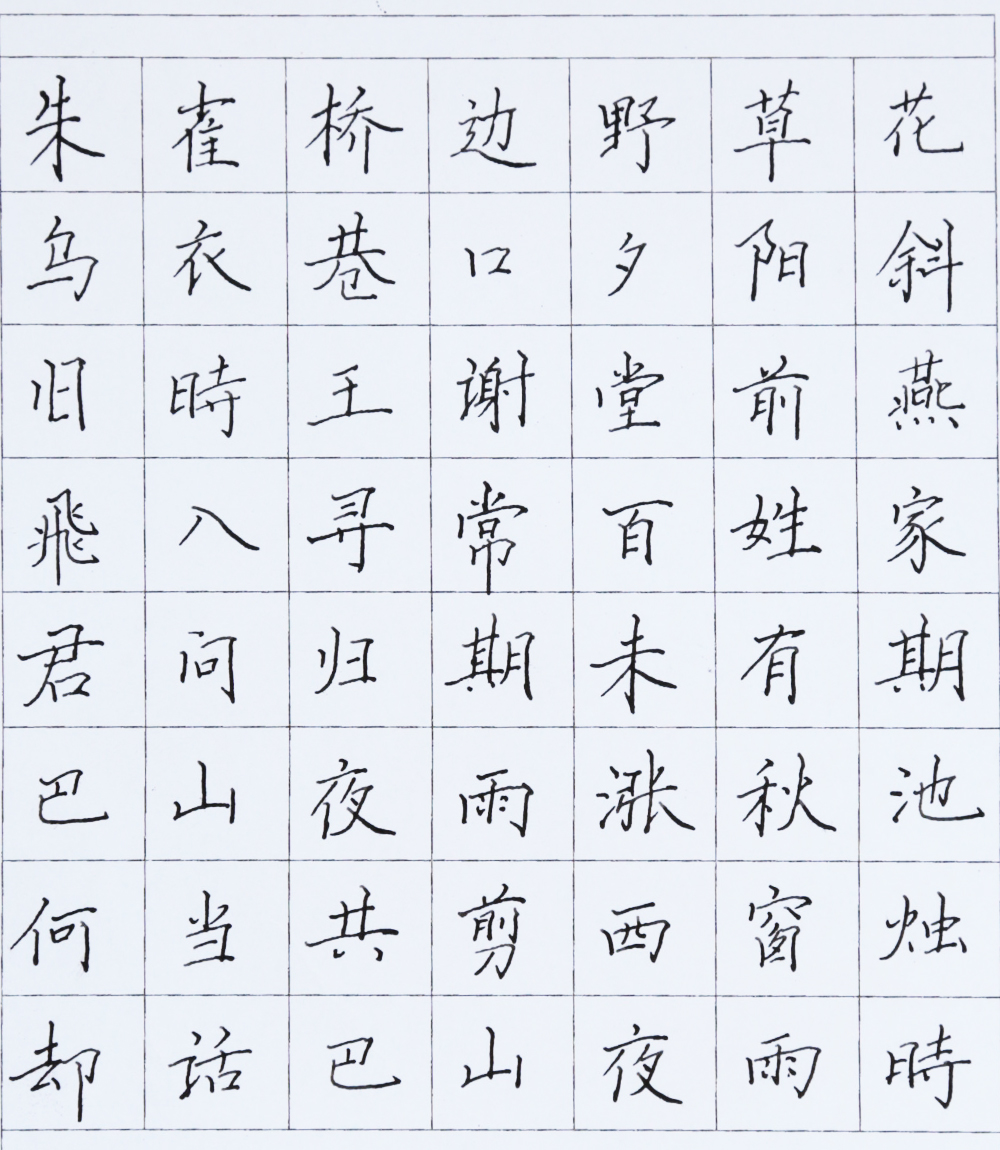 朱雀桥边野草花
乌衣巷口夕阳斜
旧時王谢堂前燕
飛入寻常百姓家
君问归期未有期
巴山夜雨涨秋池
何当共剪西窗烛
却话巴山夜雨時